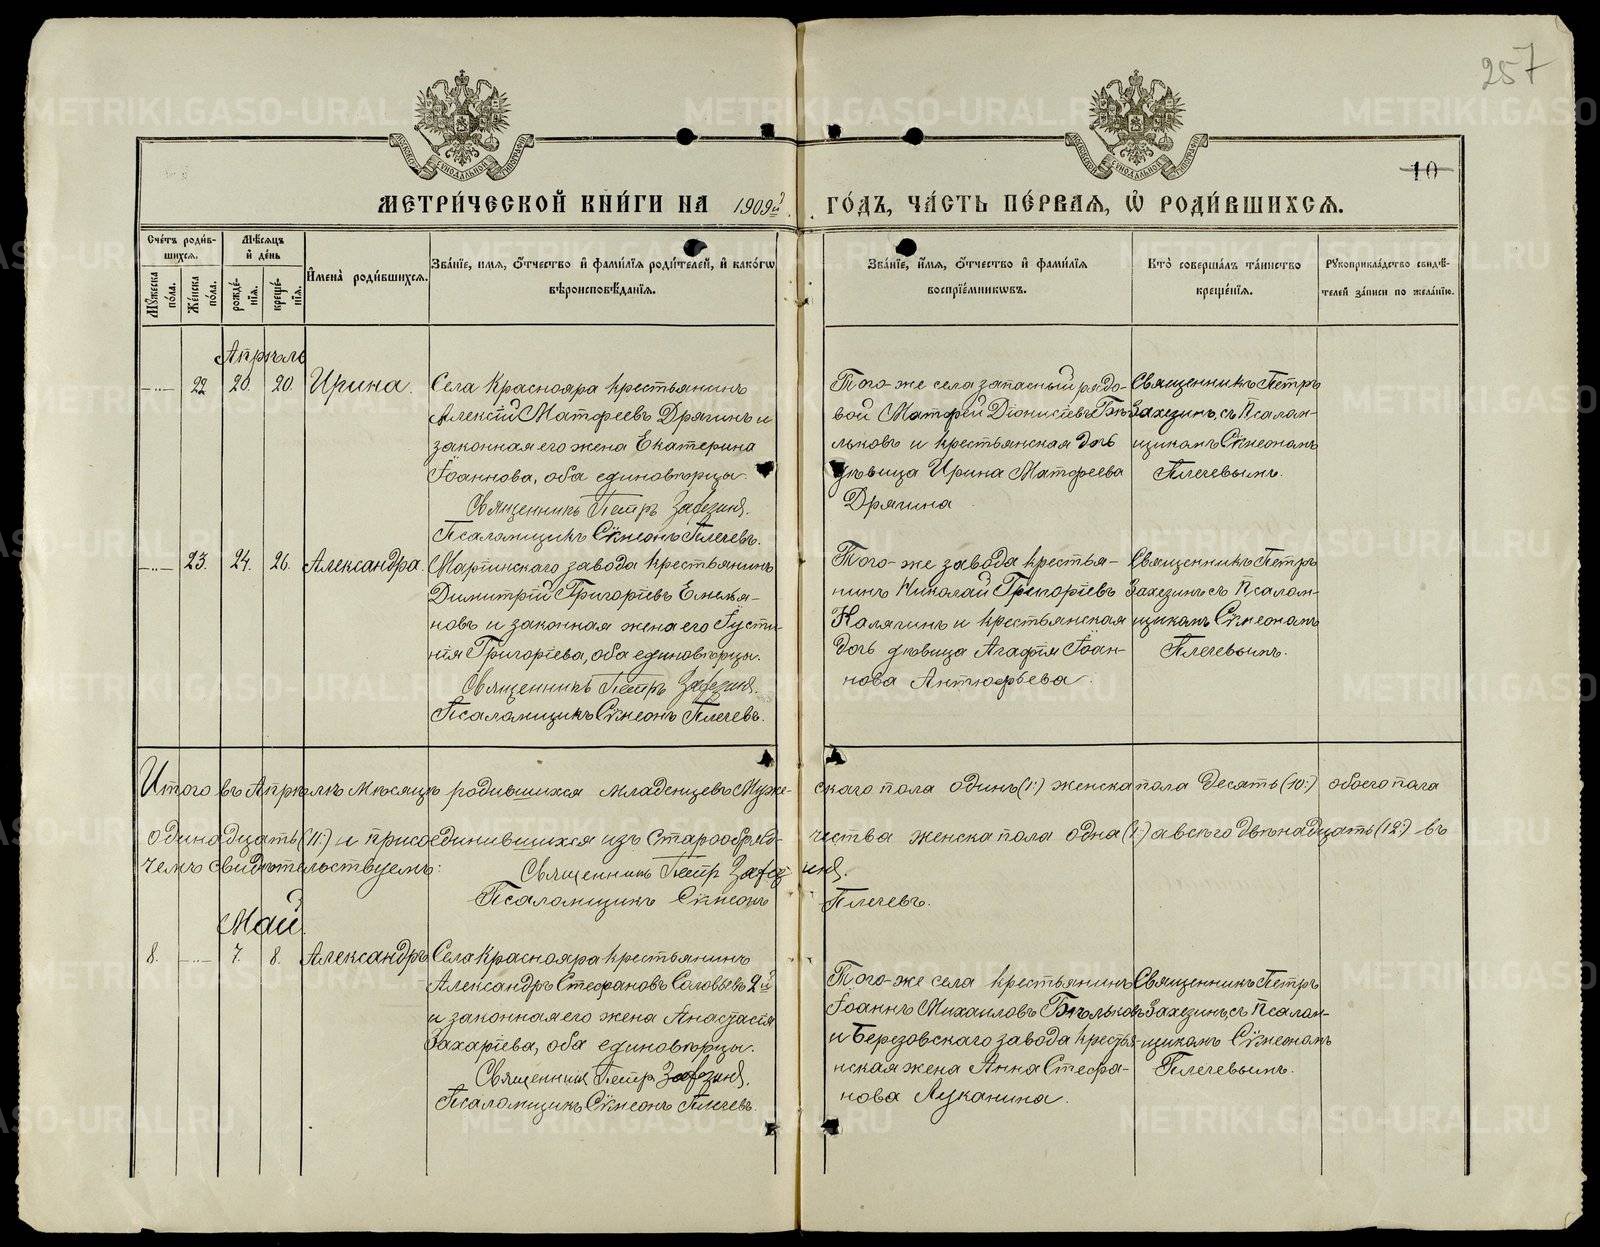 257
10
МЕТРИ́ЧЕСКОЙ КНИ́ГИ НА 1909й ГО́ДЪ, ЧА́СТЬ ПЕ́РВАЯ, Ѽ РОДИ́ВШИХСЯ.
Сче́тъ роди́в-
шихся.
Мꙋ́жеска
по́ла.
Же́нска
по́ла.
Мѣ́сяцъ
и҆ де́нь
рожде́-
нїя.
креще́-
нїя.
И҆мена̀ роди́вшихся.
Зва́нїе, и҆мя, ѻ҆́тчество и҆ фами́лїя роди́телей, и҆ како́гѡ
вѣроисповѣ́данїя.
Зва́нїе, и҆́мя, ѻ҆́тчество и҆ фами́лїя
воспрїе́мникѡвъ.
Кто̀ соверша́лъ та́инство
креще́нїя.
Рꙋкоприкла́дство свидѣ́-
телей за́писи по жела́нїю.
Апрѣль
22 20. 20. Ирина.
Села Краснояра крестьянинъ
Алексій Матфеевъ Дрягинъ и
законная его жена Екатерина
Іоаннова, оба единовѣрцы.
Священникъ Петръ Захезинъ.
Псаломщикъ Сѵмеонъ Плечевъ.
Того-же села запасный рядо-
вой Матфей Діонисіевъ Бѣ-
льковъ и крестьянская дочь
дѣвица Ирина Матфеева
Дрягина
Священникъ Петръ
Захезинъ, съ Псалом-
щикомъ Сѵмеономъ
Плечевымъ.
23. 24. 26. Александра.
Маріинскаго завода крестьянинъ
Димитрій Григоріевъ Емелья-
новъ и законная жена его Іусти-
нія Григоріева, оба единовѣрцы.
Священникъ Петръ Захезинъ.
Псаломщикъ Сѵмеонъ Плечевъ.
Того-же завода крестья-
нинъ Николай Григоріевъ
Калягинъ и крестьянская
дочь дѣвица Агафія Іоан-
нова Антюфьева.
Священникъ Петръ
Захезинъ съ Псалом-
щикомъ Сѵмеономъ
Плечевымъ.
Итого въ Апрѣлѣ мѣсяцѣ родившихся младенцевъ муже-скаго пола одинъ (1:) женска пола десять (10:) обоего пола
одинадцать (11:) и присоединившихся изъ старообряд-чества женска пола одна (1:) а всего двѣнадцать (12:) въ
чемъ свидѣтельствуемъ: Священникъ Петръ Захезинъ.
Псаломщикъ Сѵмеонъ Плечевъ.
Май.
8. 7. 8. Александръ
Села Краснояра крестьянинъ
Александръ Стефановъ Соловьевъ 2й
и законная его жена Анастасія
Захаріева, оба единовѣрцы.
Священникъ Петръ Захезинъ.
Псаломщикъ Сѵмеонъ Плечевъ.
Того-же села крестьянинъ
Іоаннъ Михаиловъ Бѣльковъ
и Березовскаго завода крестья-
нская жена Анна Стефа-
нова Луканина.
Священникъ Петръ
Захезинъ, съ Псалом-
щикомъ Сѵмеономъ
Плечевымъ.
METRIKI.GASO-URAL.RU